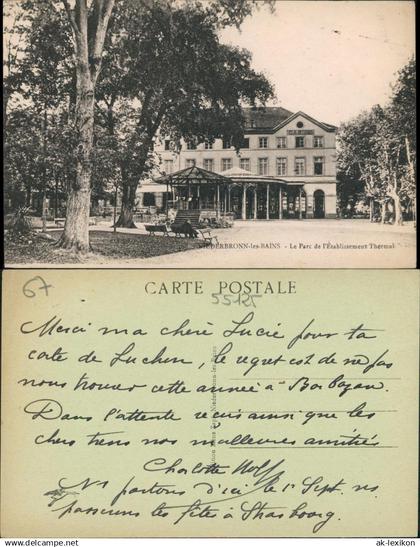 NIEDERBRONN-les-BAINS - Le Parc de l'Établissement Thermal
67
CARTE POSTALE
55125
Merci ma chère Lucie pour ta
carte de Luchon, le regret est de ne pas
nous trouver cette année à Barbazan.
Dans l'attente reçois ainsi que les
chers tiens nos meilleures amitiés
Charlotte Wolff
Ns partons d'ici le 1er Sept. ns
passerons les fêtes à Strasbourg.
ak-lexikon